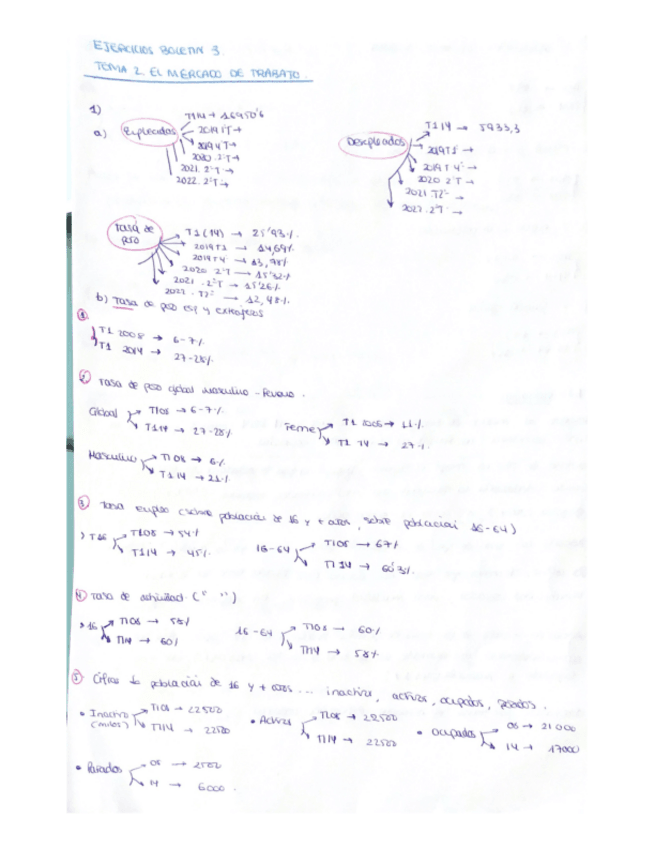 EJERCICIOS BOLETIN 3.
TEMA 2. EL MERCADO DE TRABAJO.
1)
a) Empleados
T1 14 → 16950'6
2019 1ºT →
2019 4T →
2020 2ºT →
2021. 2ºT →
2022. 2ºT →
Desempleados
T1 14 → 5933,3
2019T1 →
2019 T 4º →
2020 2ºT →
2021 T2º →
2022. 2ºT →
Tasa de paro
T1 (14) → 25'93%.
2019T1 → 14,69%
2019T4 → 13,78%
2020 2ºT → 15'32%
2021 .2ºT → 15'26%
2022 . T2º → 12,48%.
b) Tasa de paro esp y extranjeros
1
T1 2008 → 6-7%
T1 2014 → 27-28%.
2 Tasa de paro global masculino - femenino.
Global T108 → 6-7%.
T114 → 27-28%
Feme T1 2008 → 11%
T1 14 → 27%.
Masculino T1 08 → 6%
T1 14 → 21%.
3 Tasa empleo (sobre población de 16 y + años, sobre población 16-64)
>16 T108 → 54%
T114 → 45%.
16-64 T108 → 67%
T1 14 → 60'3%.
4 Tasa de actividad. (" ")
>16 T108 → 58%
T114 → 60%
16-64 T108 → 60%
T114 → 58%
5 Cifras de población de 16 y + años... inactivos, activos, ocupados, parados.
• Inactivo (miles) T108 → 22500
T114 → 22500
• Activos T108 → 22500
T114 → 22500
• Ocupados 08 → 21000
14 → 17000
• Parados 08 → 2500
14 → 6000.